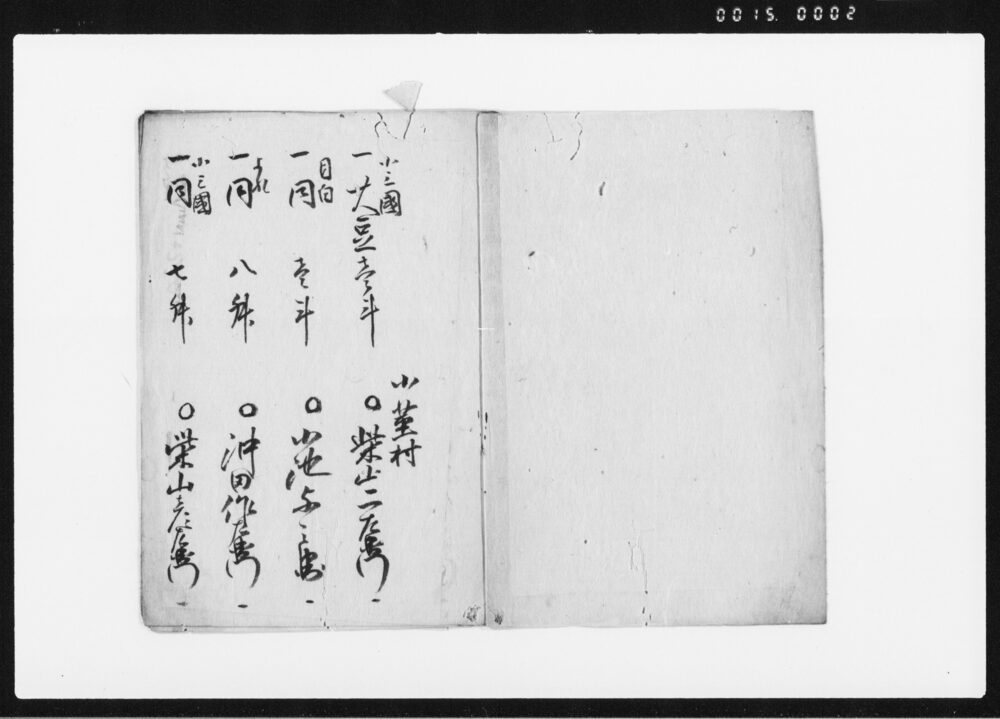 0015. 0002
小三國
一 大豆 壱斗
小莖村
○ 柴山二左衛門
目白
一 同 壱斗
○ 小池与三兵衛
一 同 八升
○ 沖田作左衛門
小三國
一 同 七升
○ 柴山彦左衛門